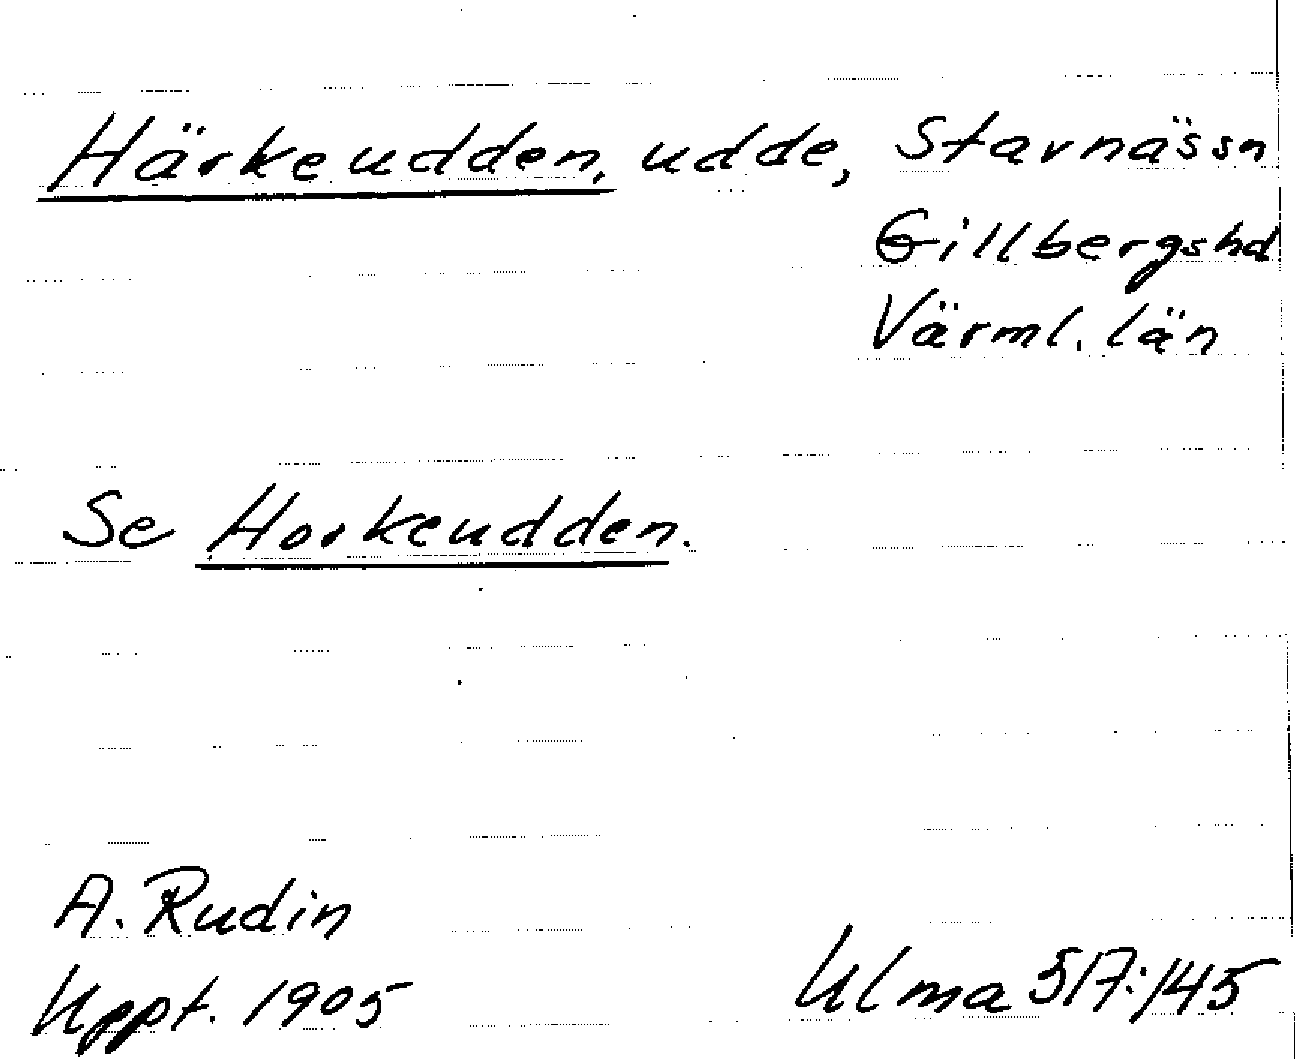 Härkeudden, udde, Stavnässn
Gillbergshd
Värml. län
Se Horkeudden.
A. Rudin
Uppt. 1905
Ulma 517:145